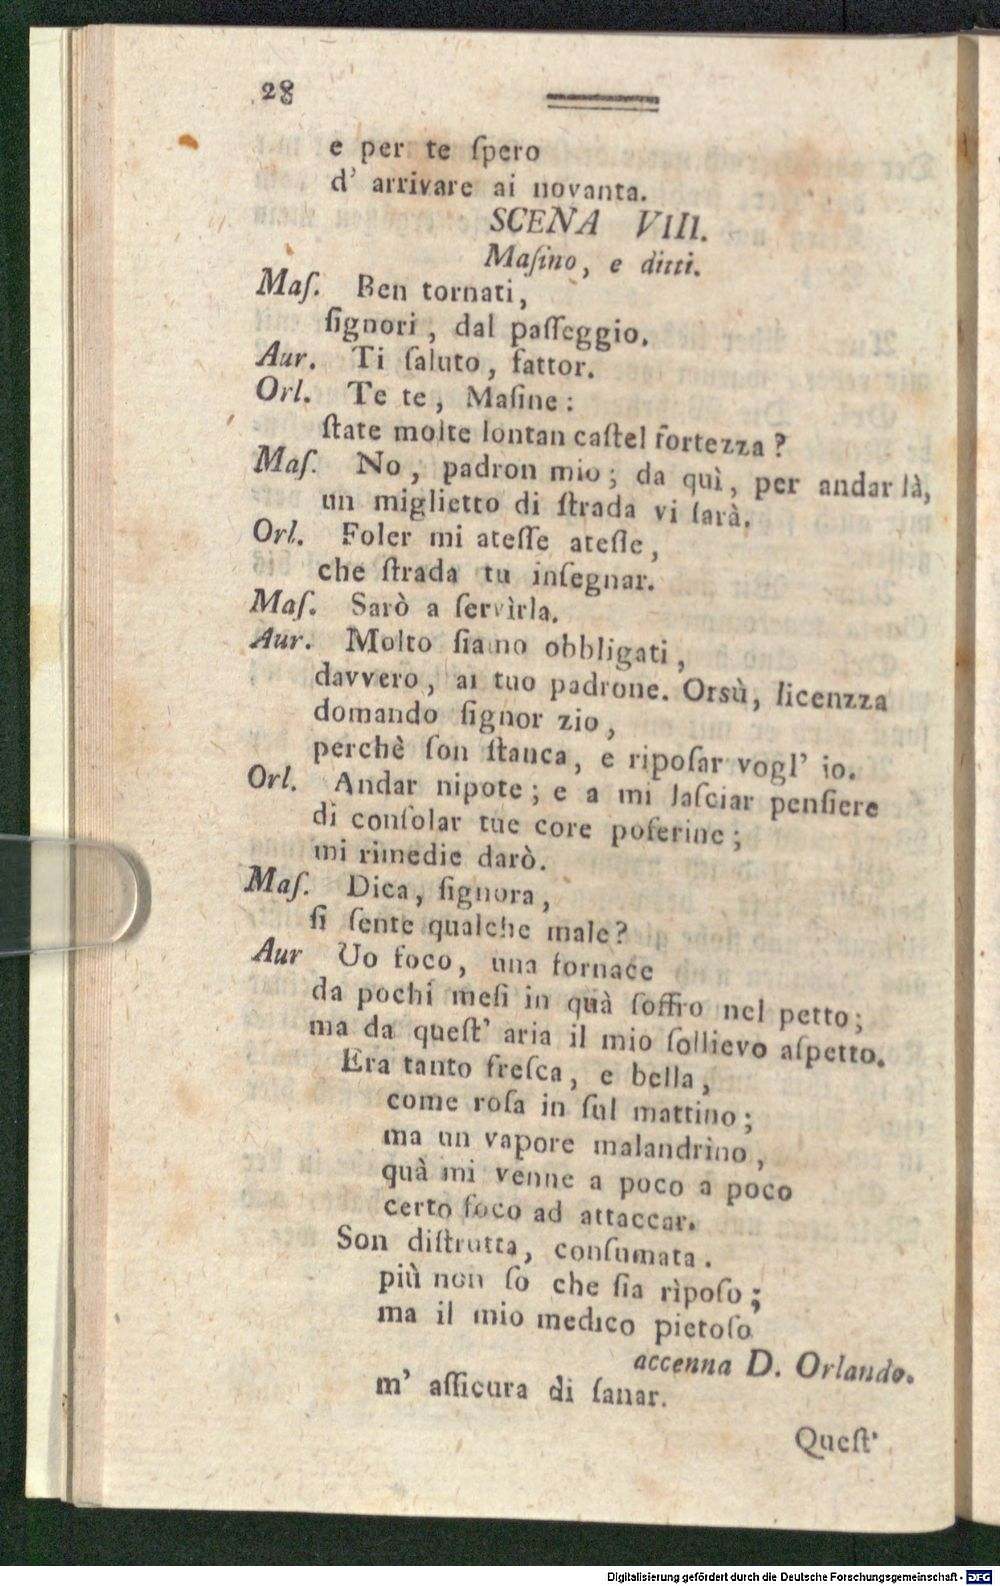 28
e per te ſpero
d' arrivare ai novanta.
SCENA VIII.
Maſino, e ditti.
Maſ. Ben tornati,
ſignori, dal paſſeggio.
Aur. Ti ſaluto, fattor.
Orl. Te te, Maſine:
ſtate molte lontan caſtel fortezza?
Maſ. No, padron mio; da quì, per andar là,
un miglietto di ſtrada vi ſarà.
Orl. Foler mi ateſſe ateſſe,
che ſtrada tu inſegnar.
Maſ. Sarò a ſervìrla.
Aur. Molto ſiamo obbligati,
davvero, al tuo padrone. Orsù, licenzza
domando ſignor zio,
perchè ſon ſtanca, e ripoſar vogl' io.
Orl. Andar nipote; e a mi laſciar penſiere
di conſolar tue core poferine;
mi rimedie darò.
Maſ. Dica, ſignora,
ſi ſente qualche male?
Aur Uo foco, una fornace
da pochi meſi in quà ſoffro nel petto;
ma da queſt' aria il mio ſollievo aſpetto.
Era tanto freſca, e bella,
come roſa in ſul mattino;
ma un vapore malandrino,
quà mi venne a poco a poco
certo foco ad attaccar.
Son diſtrutta, conſumata.
più non ſo che ſia rìpoſo;
ma il mio medico pietoſo
accenna D. Orlando.
m' aſſicura di ſanar.
Queſt'
Digitalisierung gefördert durch die Deutsche Forschungsgemeinschaft - DFG